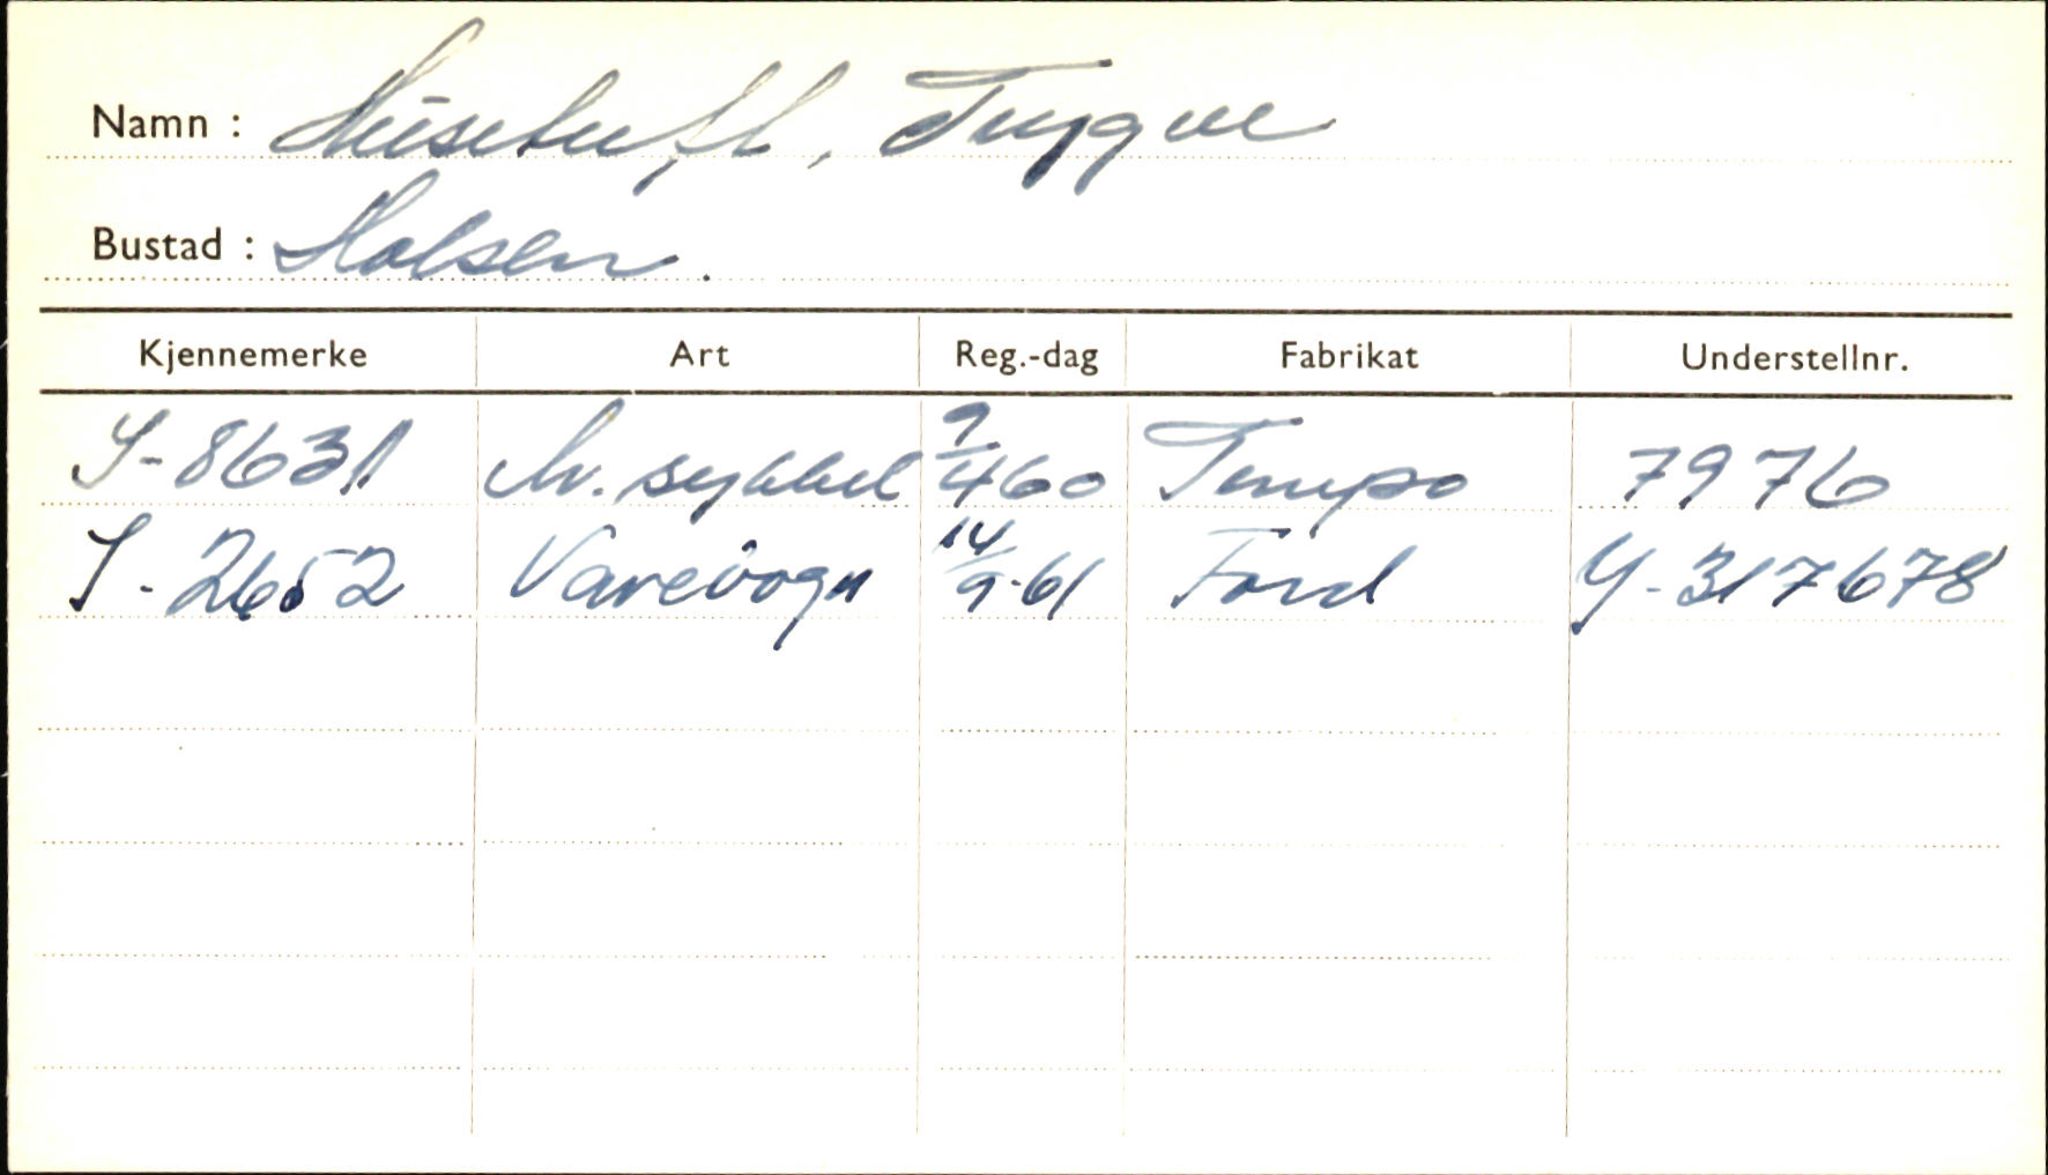 Namn : Husetuft, Trygve
Bustad : Holsen.
Kjennemerke Art Reg.-dag Fabrikat Understellnr.
S-8631 M. sykkel 9/4 60 Tempo 7976
S-2652 Varevogn 14/9-61 Ford Y-317678